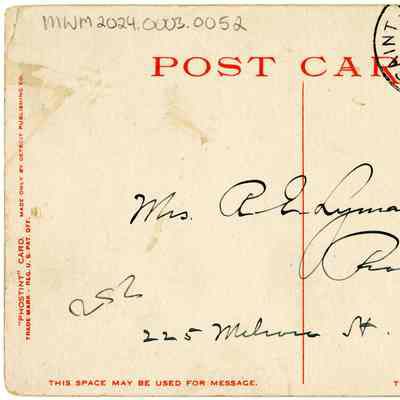 MWM2024.0003.0052
POST CAR
SAINT
Mrs. R. E. Lyma
225 Melrose St.
252
"PHOSTINT" CARD. MADE ONLY BY DETROIT PUBLISHING CO.
TRADE MARK - REG. U. S. PAT. OFF.
THIS SPACE MAY BE USED FOR MESSAGE.
T